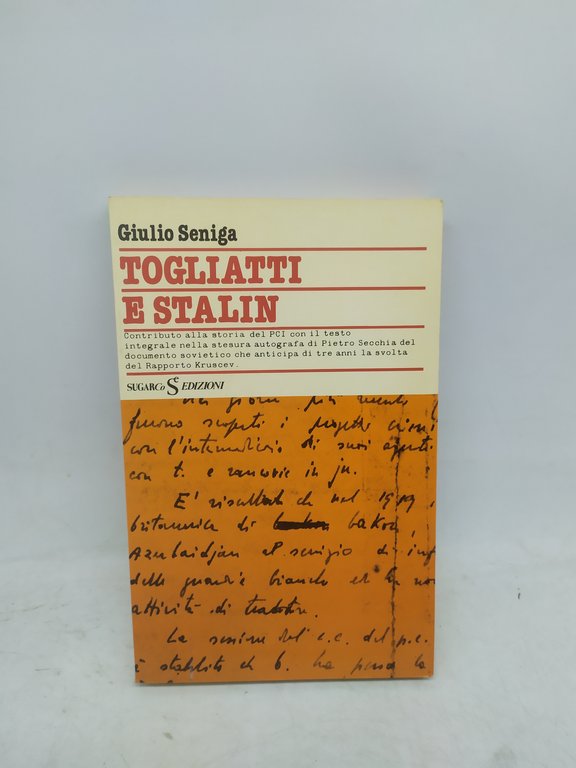 Giulio Seniga
TOGLIATTI
E STALIN
Contributo alla storia del PCI con il testo
integrale nella stesura autografa di Pietro Secchia del
documento sovietico che anticipa di tre anni la svolta
del Rapporto Kruscev.
SUGARCo Se EDIZIONI
giorni più
furono scoperti i progetti
con l'intermediario di suoi agenti
con t. e rancovic in ju.
E' risultato che nel 1919
britannica di bakou,
Azerbaidjan al servizio di
delle guardie bianche ed ha
attività di
La sessione del c.c. del p.c.
è stabilito che b. ha perso la